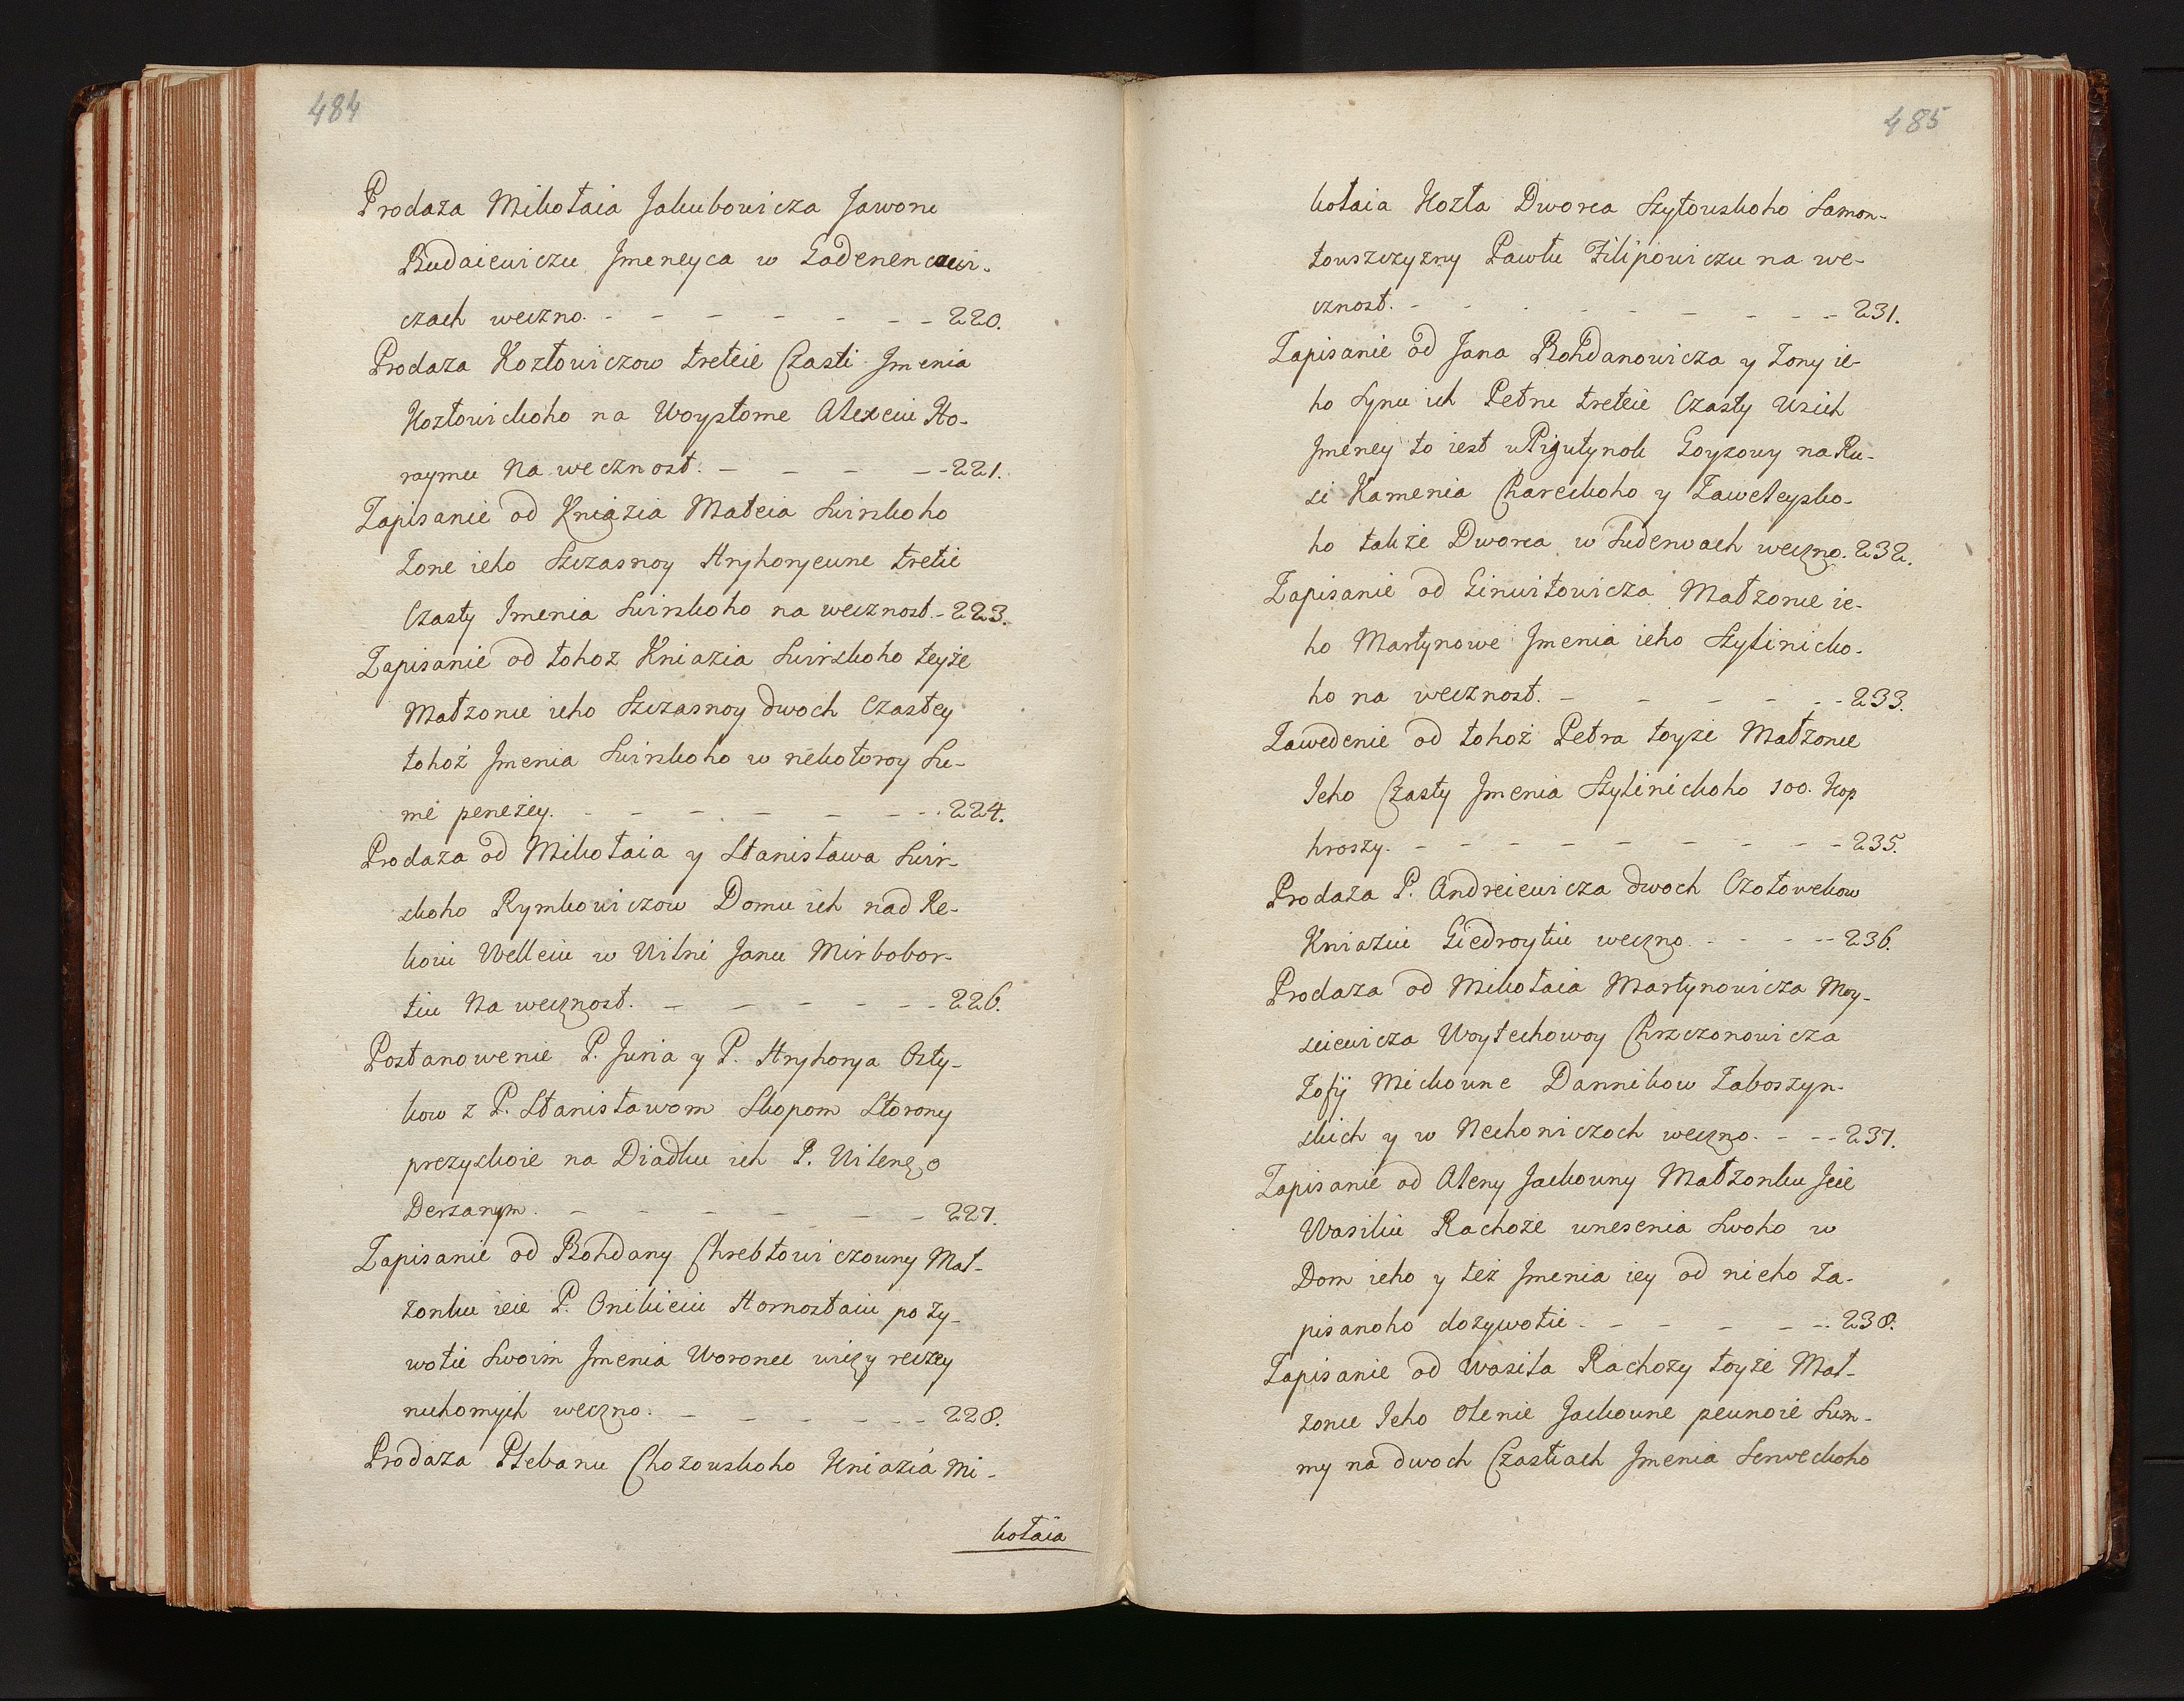 484
Prodaża Mikołaia Jakubowicza Jawonu
Budaiewiczu Jmeneyca w
czach weczno. - - - - - - - 220.
Prodaża Kozłowiczow treteie Czasti Jmenia
Kozłowickoho na Woystome Alexeiu Ho-
raymu Na wecznost. - - - - - 221.
Zapisanie od Kniazia Mateia Swirskoho
Żone ieho Szczasnoy Hryhoryewne tretie
Czasty Imenia Swirskoho na wecznost. - 223.
Zapisanie od tohoż Kniazia Swirskoho teyże
Małżonce ieho Szczasnoy dwoch Czastey
tohoż Jmenia Swirskoho w nekotoroy Su-
me peneżey. - - - - - - - 224.
Prodaża od Mikołaia y Stanisława Swir-
skoho Rymkowiczow Domu ich nad Re-
koiu Welleiu w Wilni Janu Mirbobor-
tiu Na wecznost. - - - - - - 226.
Postanowenie P. Juria y P. Hryhorya Osty-
kow z P. Stanisławom Skopom Storony
prezyskoie na Diadku ich P. Wilenzo
Derżanym. - - - - - - - 227.
Zapisanie od Bohdany Chrebtowiczowny Mał-
żonku ieie P. Onikieiu Hornostaiu po ży-
wotie Swoim Jmenia Woronee wiczy reczey
ruchomych weczno. - - - - - - 228.
Prodaża Plebanu Chożowskoho Kniazia Mi-
kołaia
485
kołaia Kozła Dworca Szyłowskoho Samon-
towszczyzny Pawłu Filipowiczu na we-
cznost. - - - - - - - - 231.
Zapisanie od Jana Bohdanowicza y Żony ie-
ho Synu ich Petru treteie Czasty Wsich
Jmeney to iest w Goyzowy na Ru-
si Kamenia Chareckoho y
ho także Dworca w Suderwach weczno. 232.
Zapisanie od Ginwiłowicza Małżonce ie-
ho Martynowe Jmenia ieho Szylinicko-
ho na wecznost. - - - - - - 233.
Zawedenie od tohoż Petra toyże Małżonce
Jeho Czasty Jmenia Szylinickoho 100. Kop
hroszy. - - - - - - - - - 235.
Prodaża P. Andreiewicza dwoch Czołowekow
Kniaziu Giedroytiu weczno. - - - - 236.
Prodaża od Mikołaia Martynowicza Moy-
seiewicza Woytechowoy Chrzczonowicza
Zofij Mickowne Dannikow Zaboszyn-
skich y w Nechoniczoch weczno. - - - 237.
Zapisanie od Aleny Jackowny Małżonku Jeie
Wasiliu Rachoże wnesenia Swoho w
Dom ieho y też Jmenia iey od nieho Za-
pisanoho dożywotie. - - - - - - 238.
Zapisanie od Wasila Rachoży toyże Mał-
żonce Jeho Olenie Jackowne pewnoie Sum-
my na dwoch Czastiach Jmenia Serweckoho